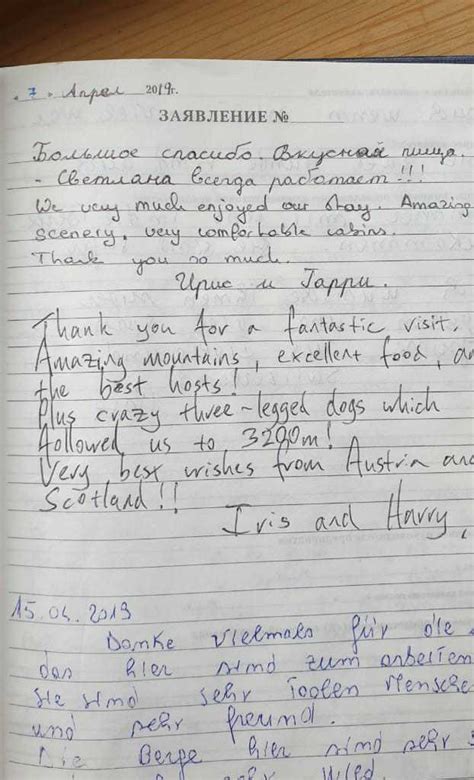 " 7 " Апрел 2019г.
ЗАЯВЛЕНИЕ №
Большое спасибо. Вкусная пища.
- Светлана всегда работает!!!
We very much enjoyed our stay. Amazing
scenery, very comfortable cabins.
Thank you so much.
Ирис и Гарри.
Thank you for a fantastic visit.
Amazing mountains, excellent food, an
the best hosts!
Plus crazy three-legged dogs which
followed us to 3200m!
Very best wishes from Austria and
Scotland!!
Iris and Harry.
15.04.2019
Danke vielmals für die
das hier sind zum arbeiten
Sie sind sehr Toolen Mensche
und sehr freund.
Die Berge hier sind sehr
sehr Wild.